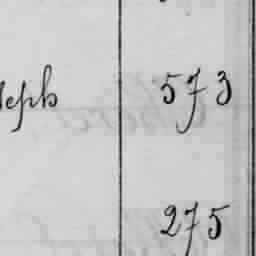 seph 573
275